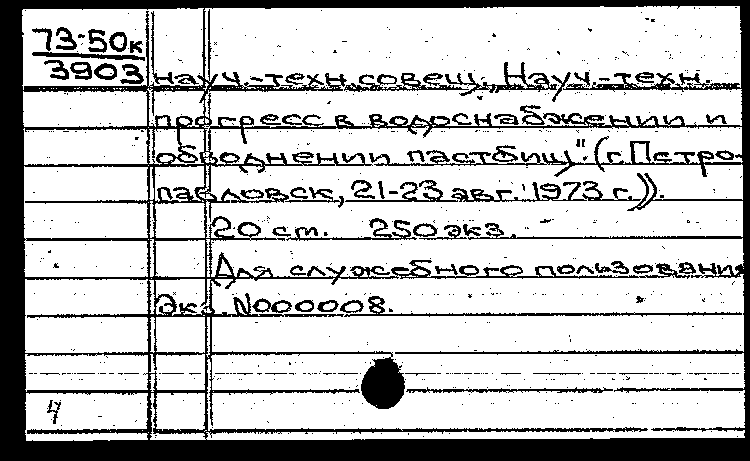 73-50к
3903
науч.-техн.совещ. „Науч.-техн.
прогресс в водоснабжении и
обводнении пастбищ". (г. Петро-
павловск, 21-23 авг. 1973 г.)).
20 ст. 250 экз.
Для служебного пользования
Экз. N000008.
4